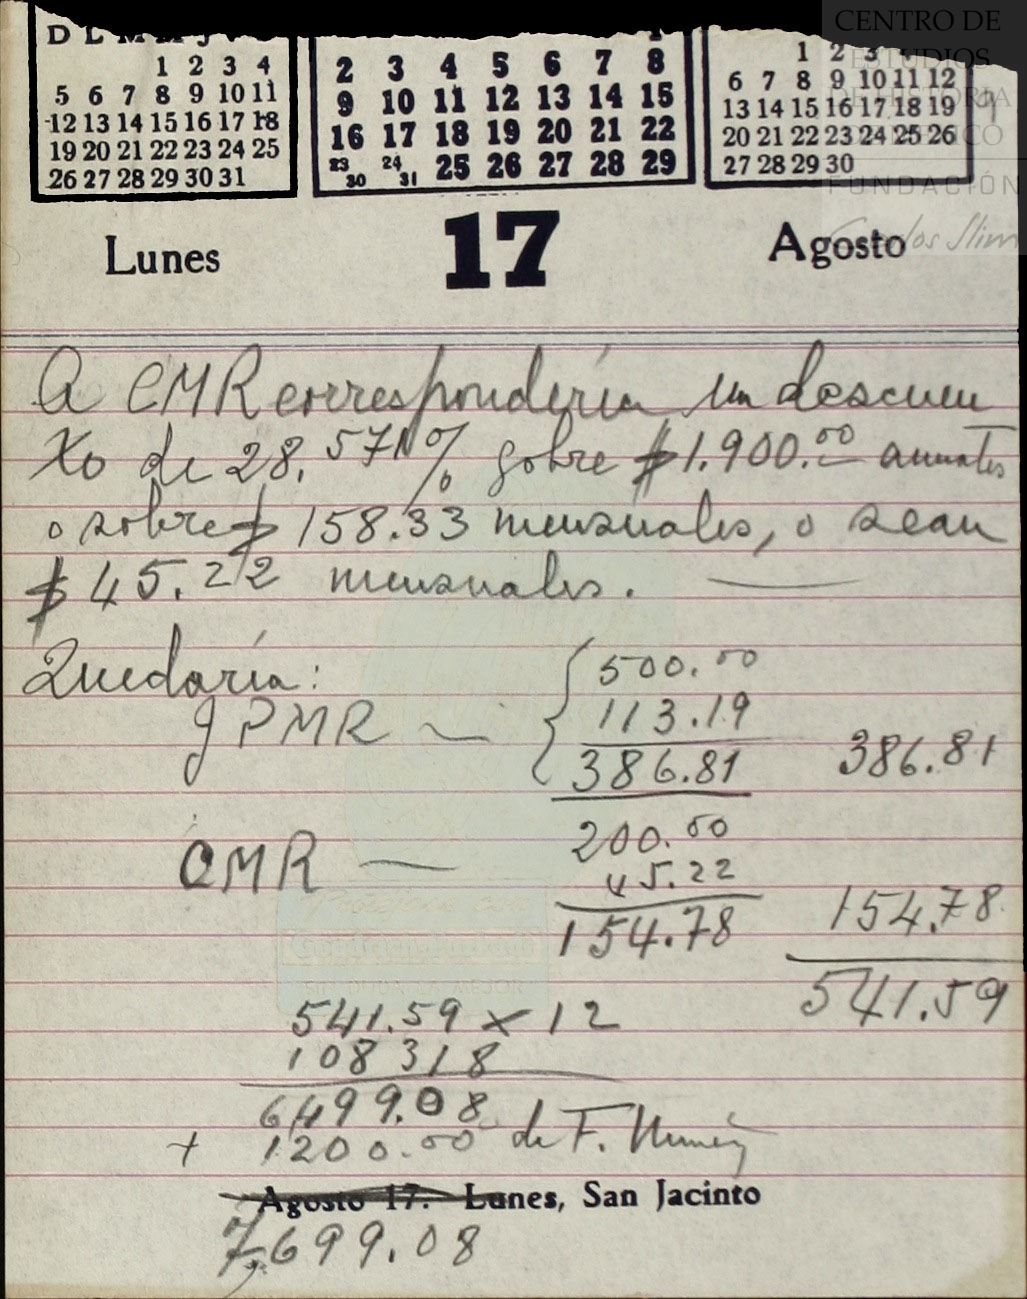 D L M M J V S
1 2 3 4
5 6 7 8 9 10 11
12 13 14 15 16 17 18
19 20 21 22 23 24 25
26 27 28 29 30 31
1
2 3 4 5 6 7 8
9 10 11 12 13 14 15
16 17 18 19 20 21 22
23/30 24/31 25 26 27 28 29
1 2 3
6 7 8 9 10 11 12
13 14 15 16 17 18 19
20 21 22 23 24 25 26
27 28 29 30
CENTRO DE
ESTUDIOS
DE HISTORIA
DE MÉXICO
FUNDACIÓN
Carlos Slim
Lunes 17 Agosto
A CMR correspondería un descuen
to de 28.571% sobre $1.900.00 anuales
o sobre $ 158.33 mensuales, o sean
$ 45.22 mensuales.
Quedaría: 500.00
JPMR — 113.19
386.81 386.81
200.00
CMR — 45.22
154.78 154.78
541.59
541.59 x 12
108318
6499.08
+ 1200.00 de F.
Agosto 17. Lunes, San Jacinto
7,699.08